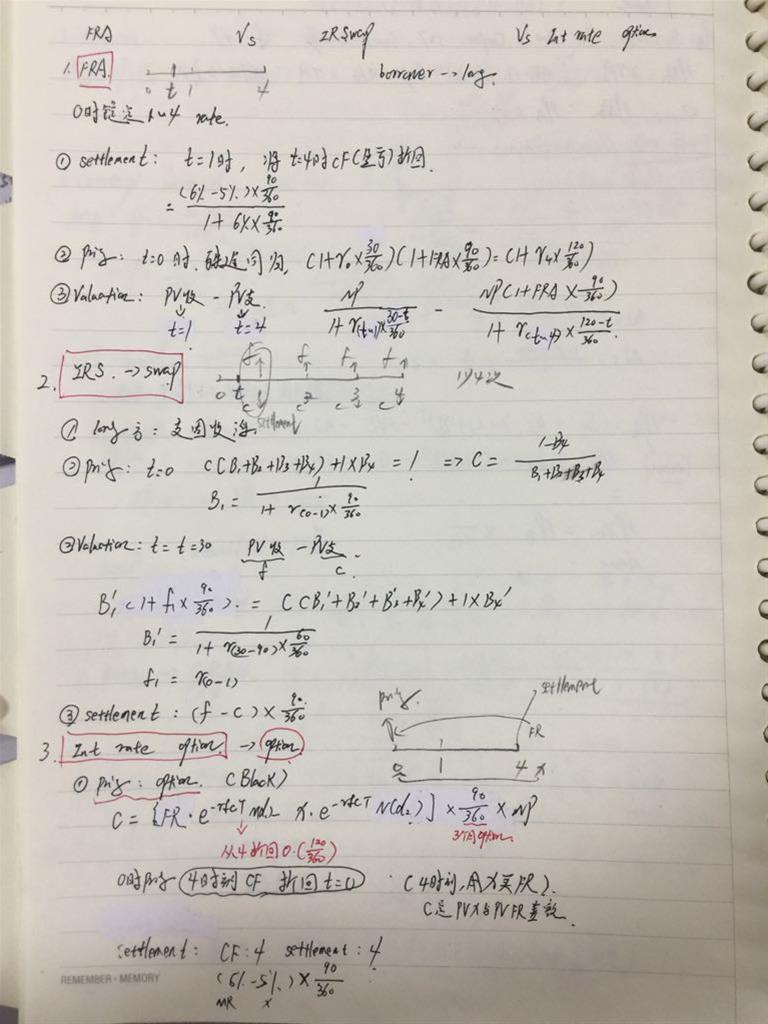 FRA Vs IR Swap Vs Int rate option
1. FRA. 0 t 1 4 borrower → long.
0时锁定 1~4 rate.
① settlement: t=1时, 将 t=4时 CF(盈亏)折回.
= (6%-5%)×90/360 / 1+6%×90/360
② pricing: t=0时, (1+r₀×30/360)(1+FRA×90/360)=(1+r₄×120/360)
③ Valuation: PV收 - PV支 NP / 1+r(t~1)×30-t/360 - NP(1+FRA×90/360) / 1+r(t~4)×120-t/360
t=1 t=4
2. IRS → swap f f f f
0 t 1 2 3 4 1年4次
c c c c
settlement
① long方: 支固收浮.
② pricing: t=0 C(B₁+B₂+B₃+B₄)+1×B₄ = 1 => C = 1-B₄ / B₁+B₂+B₃+B₄
B₁ = 1 / 1+r(0-1)×90/360
② Valuation: t=t=30 PV收 - PV支.
f c
B₁'(1+f₁×90/360) = C(B₁'+B₂'+B₃'+B₄')+1×B₄'
B₁' = 1 / 1+r(30-90)×60/360
f₁ = r(0-1)
③ settlement: (f-c)×90/360
pricing settlement
FR
0 1 4 x
3. Int rate option → option
① pricing: option. (Black)
C = [FR·e^-rfcT N(d₁) X·e^-rfcT N(d₂)] × 90/360 × NP
从4折回0.(120/360) 3个月option.
0时pricing 4时刻CF, 折回t=0 (4时刻,用X买FR).
C是PVX与PVFR差额.
settlement: CF:4 settlement:4
(6%-5%)×90/360
MR x
REMEMBER · MEMORY